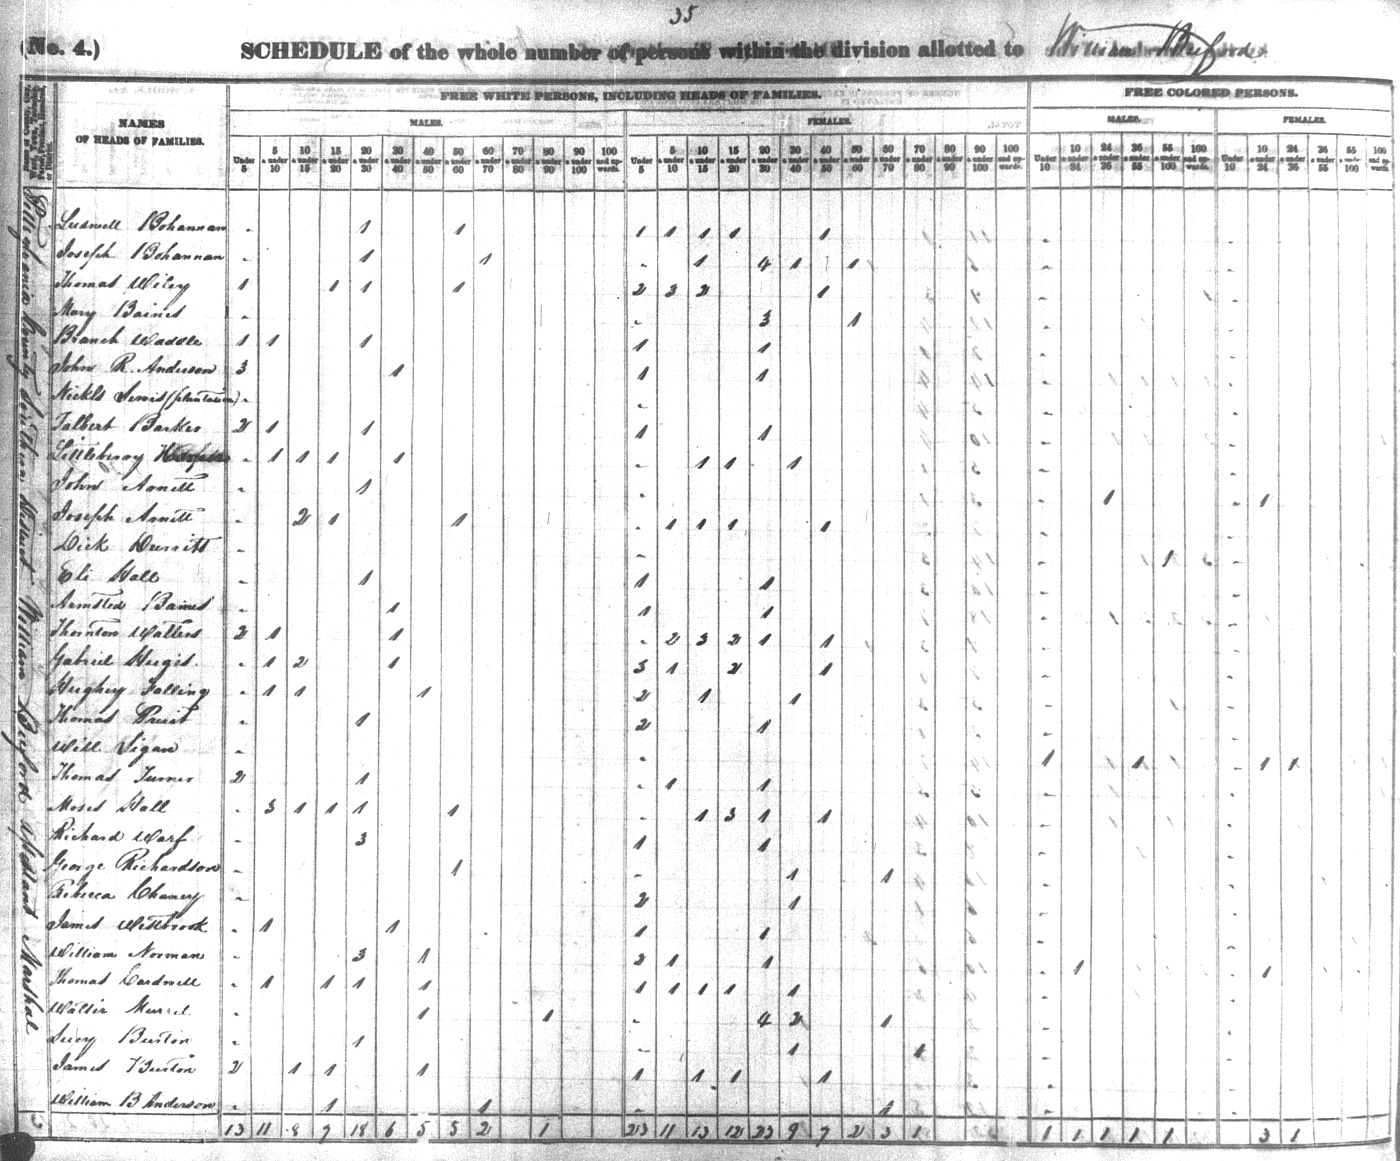 35
(No. 4.) SCHEDULE of the whole number of persons within the division allotted to William Buford
FREE WHITE PERSONS, INCLUDING HEADS OF FAMILIES. FREE COLORED PERSONS.
NAMES OF HEADS OF FAMILIES. MALES. FEMALES. MALES. FEMALES.
Under 5 5 & under 10 10 & under 15 15 & under 20 20 & under 30 30 & under 40 40 & under 50 50 & under 60 60 & under 70 70 & under 80 80 & under 90 90 & under 100 100 and upwards. Under 5 5 & under 10 10 & under 15 15 & under 20 20 & under 30 30 & under 40 40 & under 50 50 & under 60 60 & under 70 70 & under 80 80 & under 90 90 & under 100 100 and upwards. Under 10 10 & under 24 24 & under 36 36 & under 55 55 & under 100 100 and upwards. Under 10 10 & under 24 24 & under 36 36 & under 55 55 & under 100 100 and upwards.
Ludwell Bohannan - 1 1 1 1 1 1 1 - -
Joseph Bohannan - 1 1 - 1 4 1 1 - -
Thomas Wiley 1 1 1 1 2 3 2 1 - -
Mary Baines - - 3 1 - -
Branch Waddle 1 1 1 1 1 - -
John R. Anderson 3 1 1 1 - -
(plantation) - - - -
Talbert Barker 2 1 1 1 1 - -
Littleberry - 1 1 1 1 - 1 1 1 - -
John Arnett - 1 - - 1 - 1
Joseph Arnett - 2 1 1 - 1 1 1 1 - -
Dick Durritt - - - 1 -
Eli Hall - 1 1 1 - -
Armsted Baines - 1 1 1 - -
Thornton Watters 2 1 1 - 2 3 2 1 1 - -
Gabriel - 1 2 1 3 1 2 1 - -
Hughey Falling - 1 1 1 2 1 1 - -
Thomas Pruit - 1 2 1 - -
Will Ligan - - 1 1 - 1 1
Thomas Turner 2 1 1 1 - -
Moses Hall - 3 1 1 1 1 - 1 3 1 1 - -
Richard Warf - 3 1 1 - -
George Richardson - 1 - 1 1 - -
Rebecca Chaney - 2 1 - -
James Westbrook - 1 1 1 1 - -
William Norman - 3 1 2 1 1 - 1 - 1
Thomas Cardwell - 1 1 1 1 1 1 1 1 1 - -
Walter Murrel - 1 1 - 4 2 1 - -
Lucy Burton - 1 - 1 1 - -
James Burton 2 1 1 1 1 1 1 1 - -
William B Anderson - 1 1 - 1 - -
13 11 8 9 18 6 5 5 2 1 23 11 13 12 23 9 7 2 3 1 1 1 1 1 1 3 1